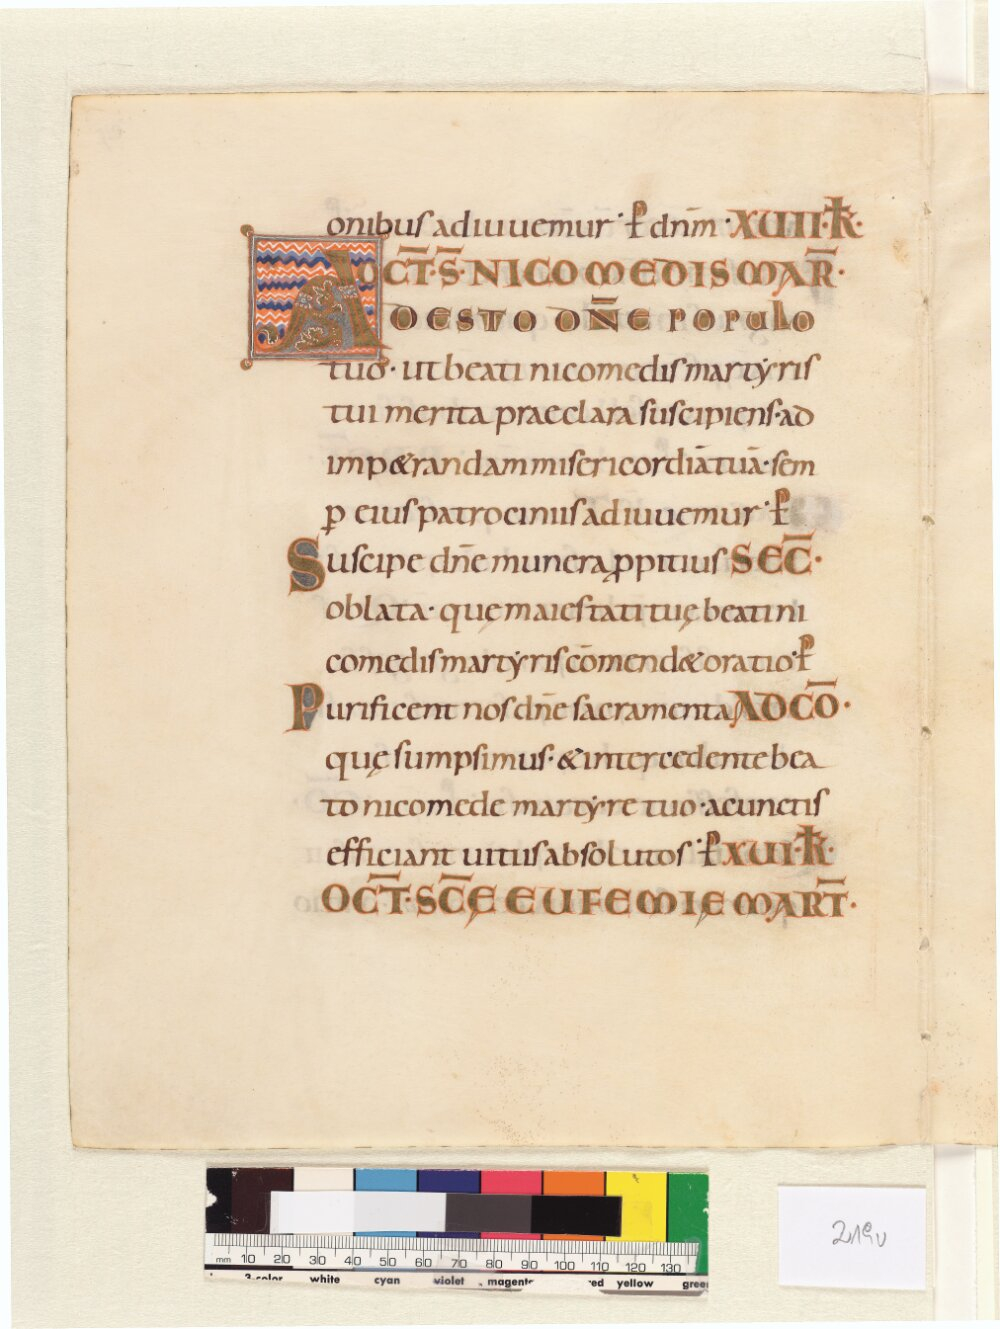 onibus adiuuemur · ꝑ dnm̄ · XUIII · K̄ ·
OCT̄ · S̄ · NICOMEDIS MAR̄ ·
ADESTO DN̄E POPULO
tuo · ut beati nicomedis martẏris
tui merita praeclara suscipiens · ad
imp&randam misericordiā tuā · sem
ꝑ eius patrociniis adiuuemur · ꝑ
Suscipe dn̄e munera ꝓpitius SEC̄ ·
oblata · quę maiestati tuę beati ni
comedis martẏris cōmend& oratio · ꝑ
Purificent nos dn̄e sacramenta AD CŌ ·
quę sumpsimus · & intercedente bea
to nicomede martẏre tuo · a cunctis
efficiant uitiis absolutos · ꝑ XUI · K̄ ·
OCT̄ · SC̄Ę EUFEMIĘ MART̄ ·
mm 10 20 30 40 50 60 70 80 90 100 110 120 130
3-color white cyan violet magenta red yellow green
219v